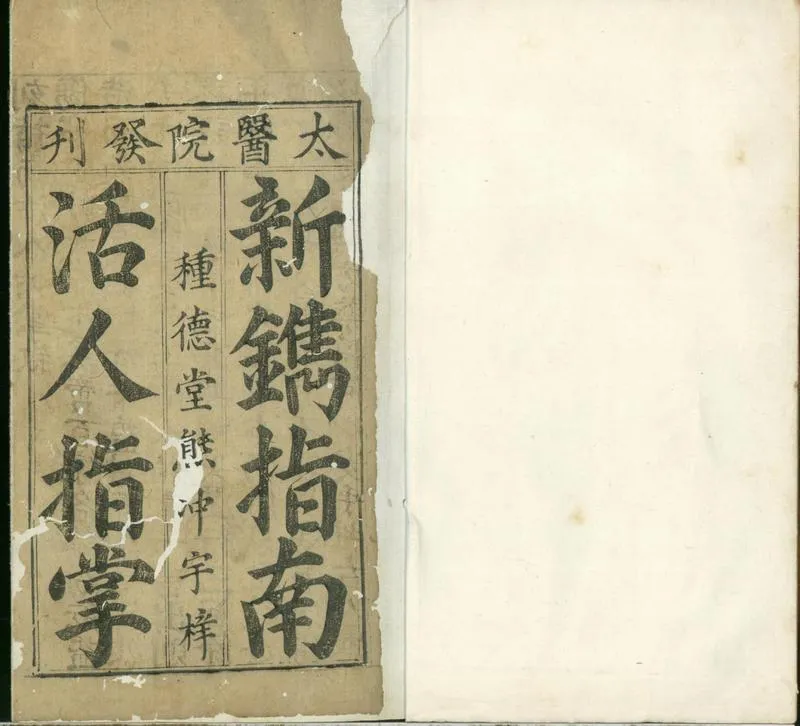 太醫院發刊
新鐫指南
種德堂熊冲宇梓
活人指掌